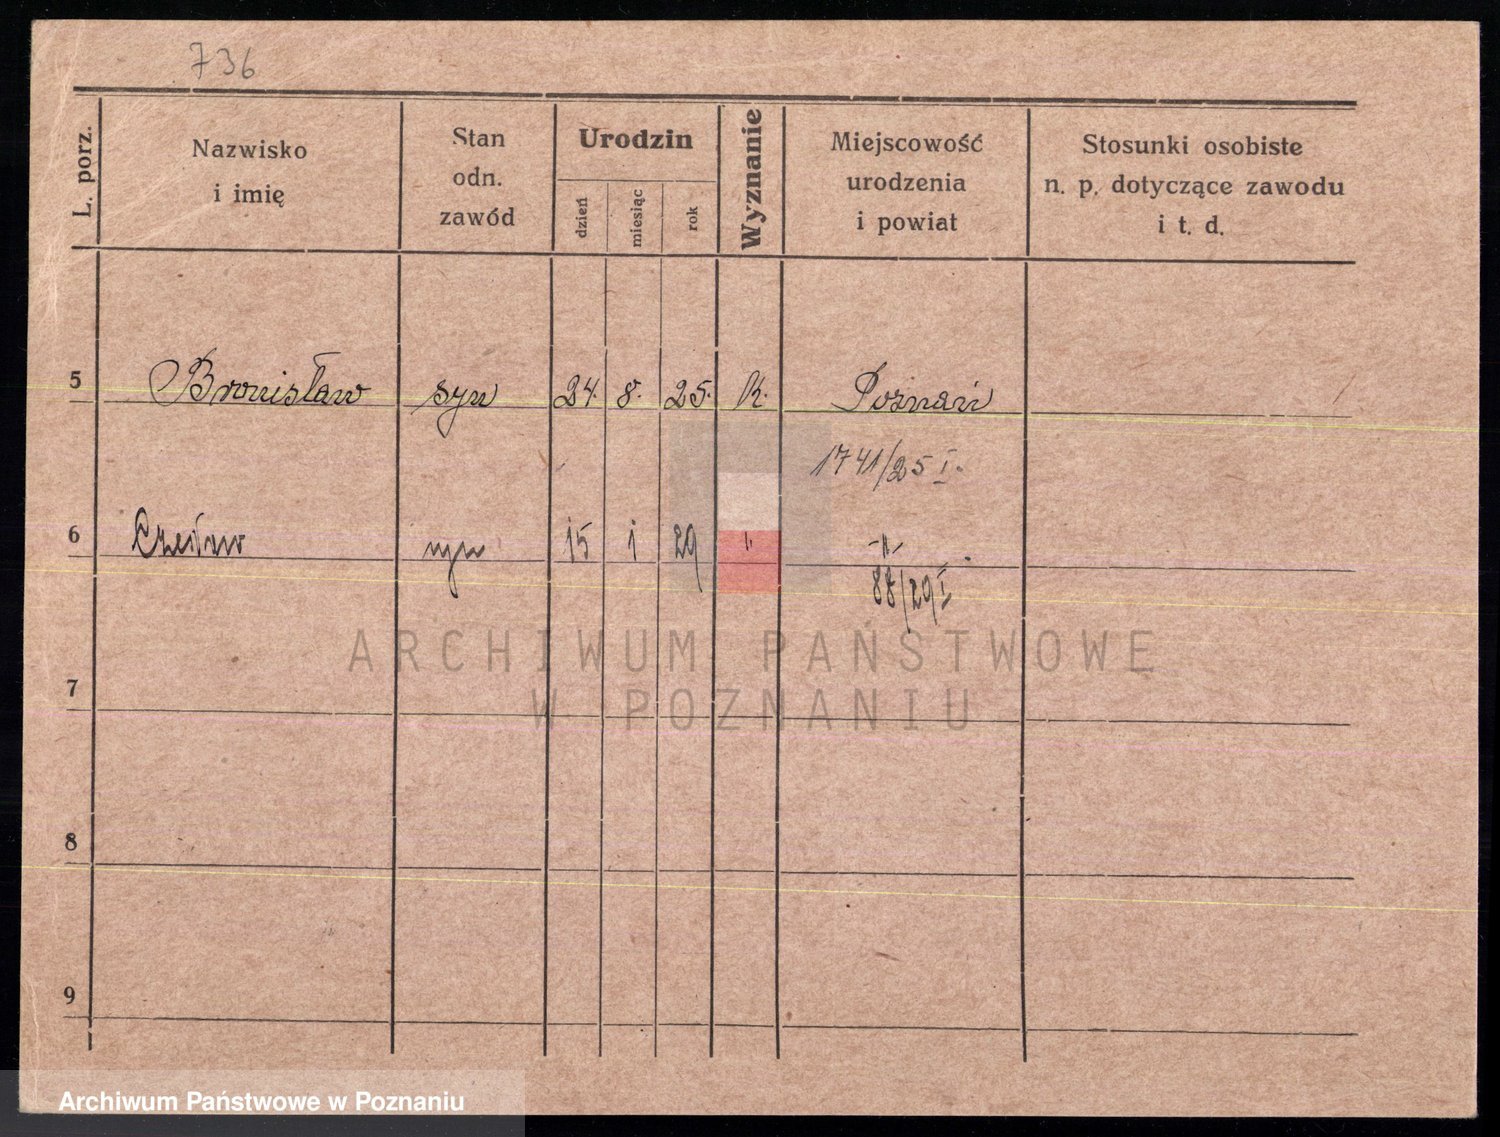 736
L. porz.
Nazwisko
i imię
Stan
odn.
zawód
Urodzin
dzień
miesiąc
rok
Wyznanie
Miejscowość
urodzenia
i powiat
Stosunki osobiste
n. p. dotyczące zawodu
i t. d.
5 Bronisław syn 24. 8. 25. K. Poznań
1741/25 I.
6 Czesław syn 15 1 29 " -"-
88/29 I
ARCHIWUM PAŃSTWOWE
W POZNANIU
7
8
9
Archiwum Państwowe w Poznaniu